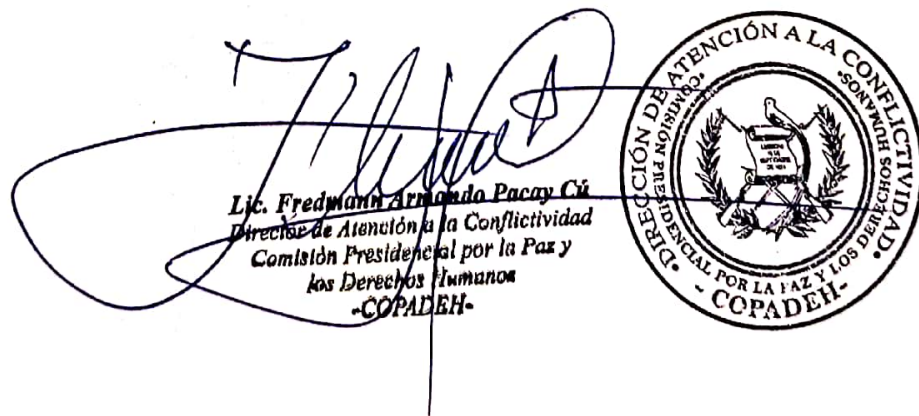 Lic. Fredmann Armando Pacay Cú
Director de Atención a la Conflictividad
Comisión Presidencial por la Paz y
los Derechos Humanos
-COPADEH-
•DIRECCIÓN DE ATENCIÓN A LA CONFLICTIVIDAD•
•COMISION PRESIDENCIAL POR LA PAZ Y LOS DERECHOS HUMANOS•
- COPADEH-